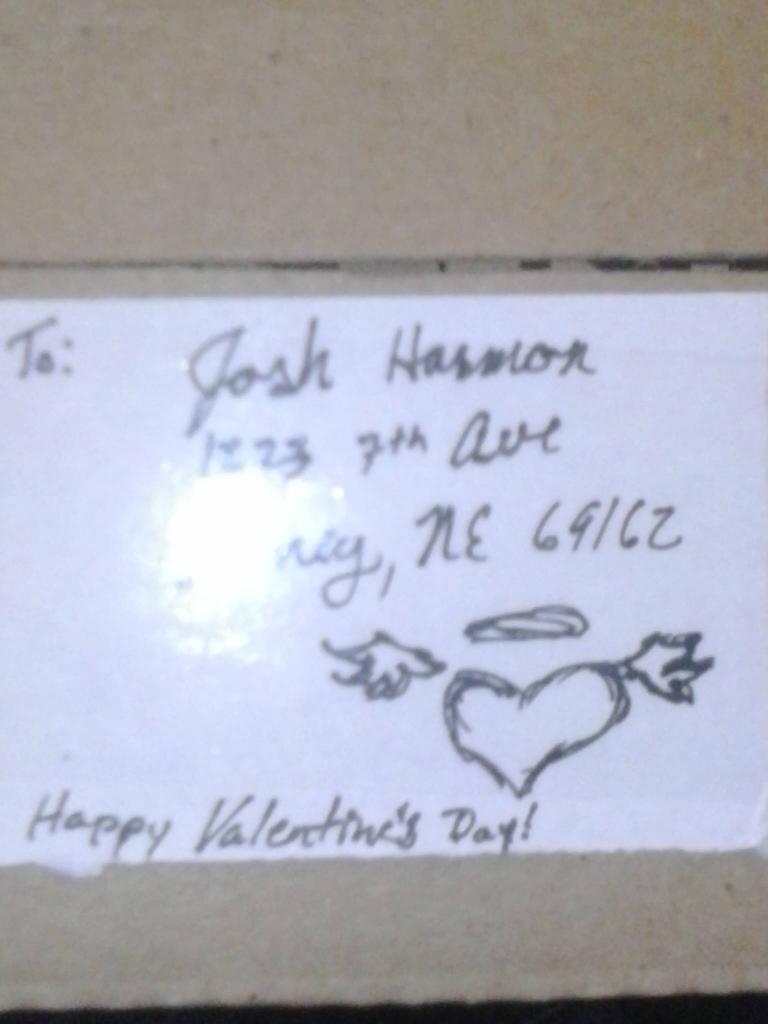 To: Josh Harmon
1223 7th Ave
NE 69162
Happy Valentine's Day!